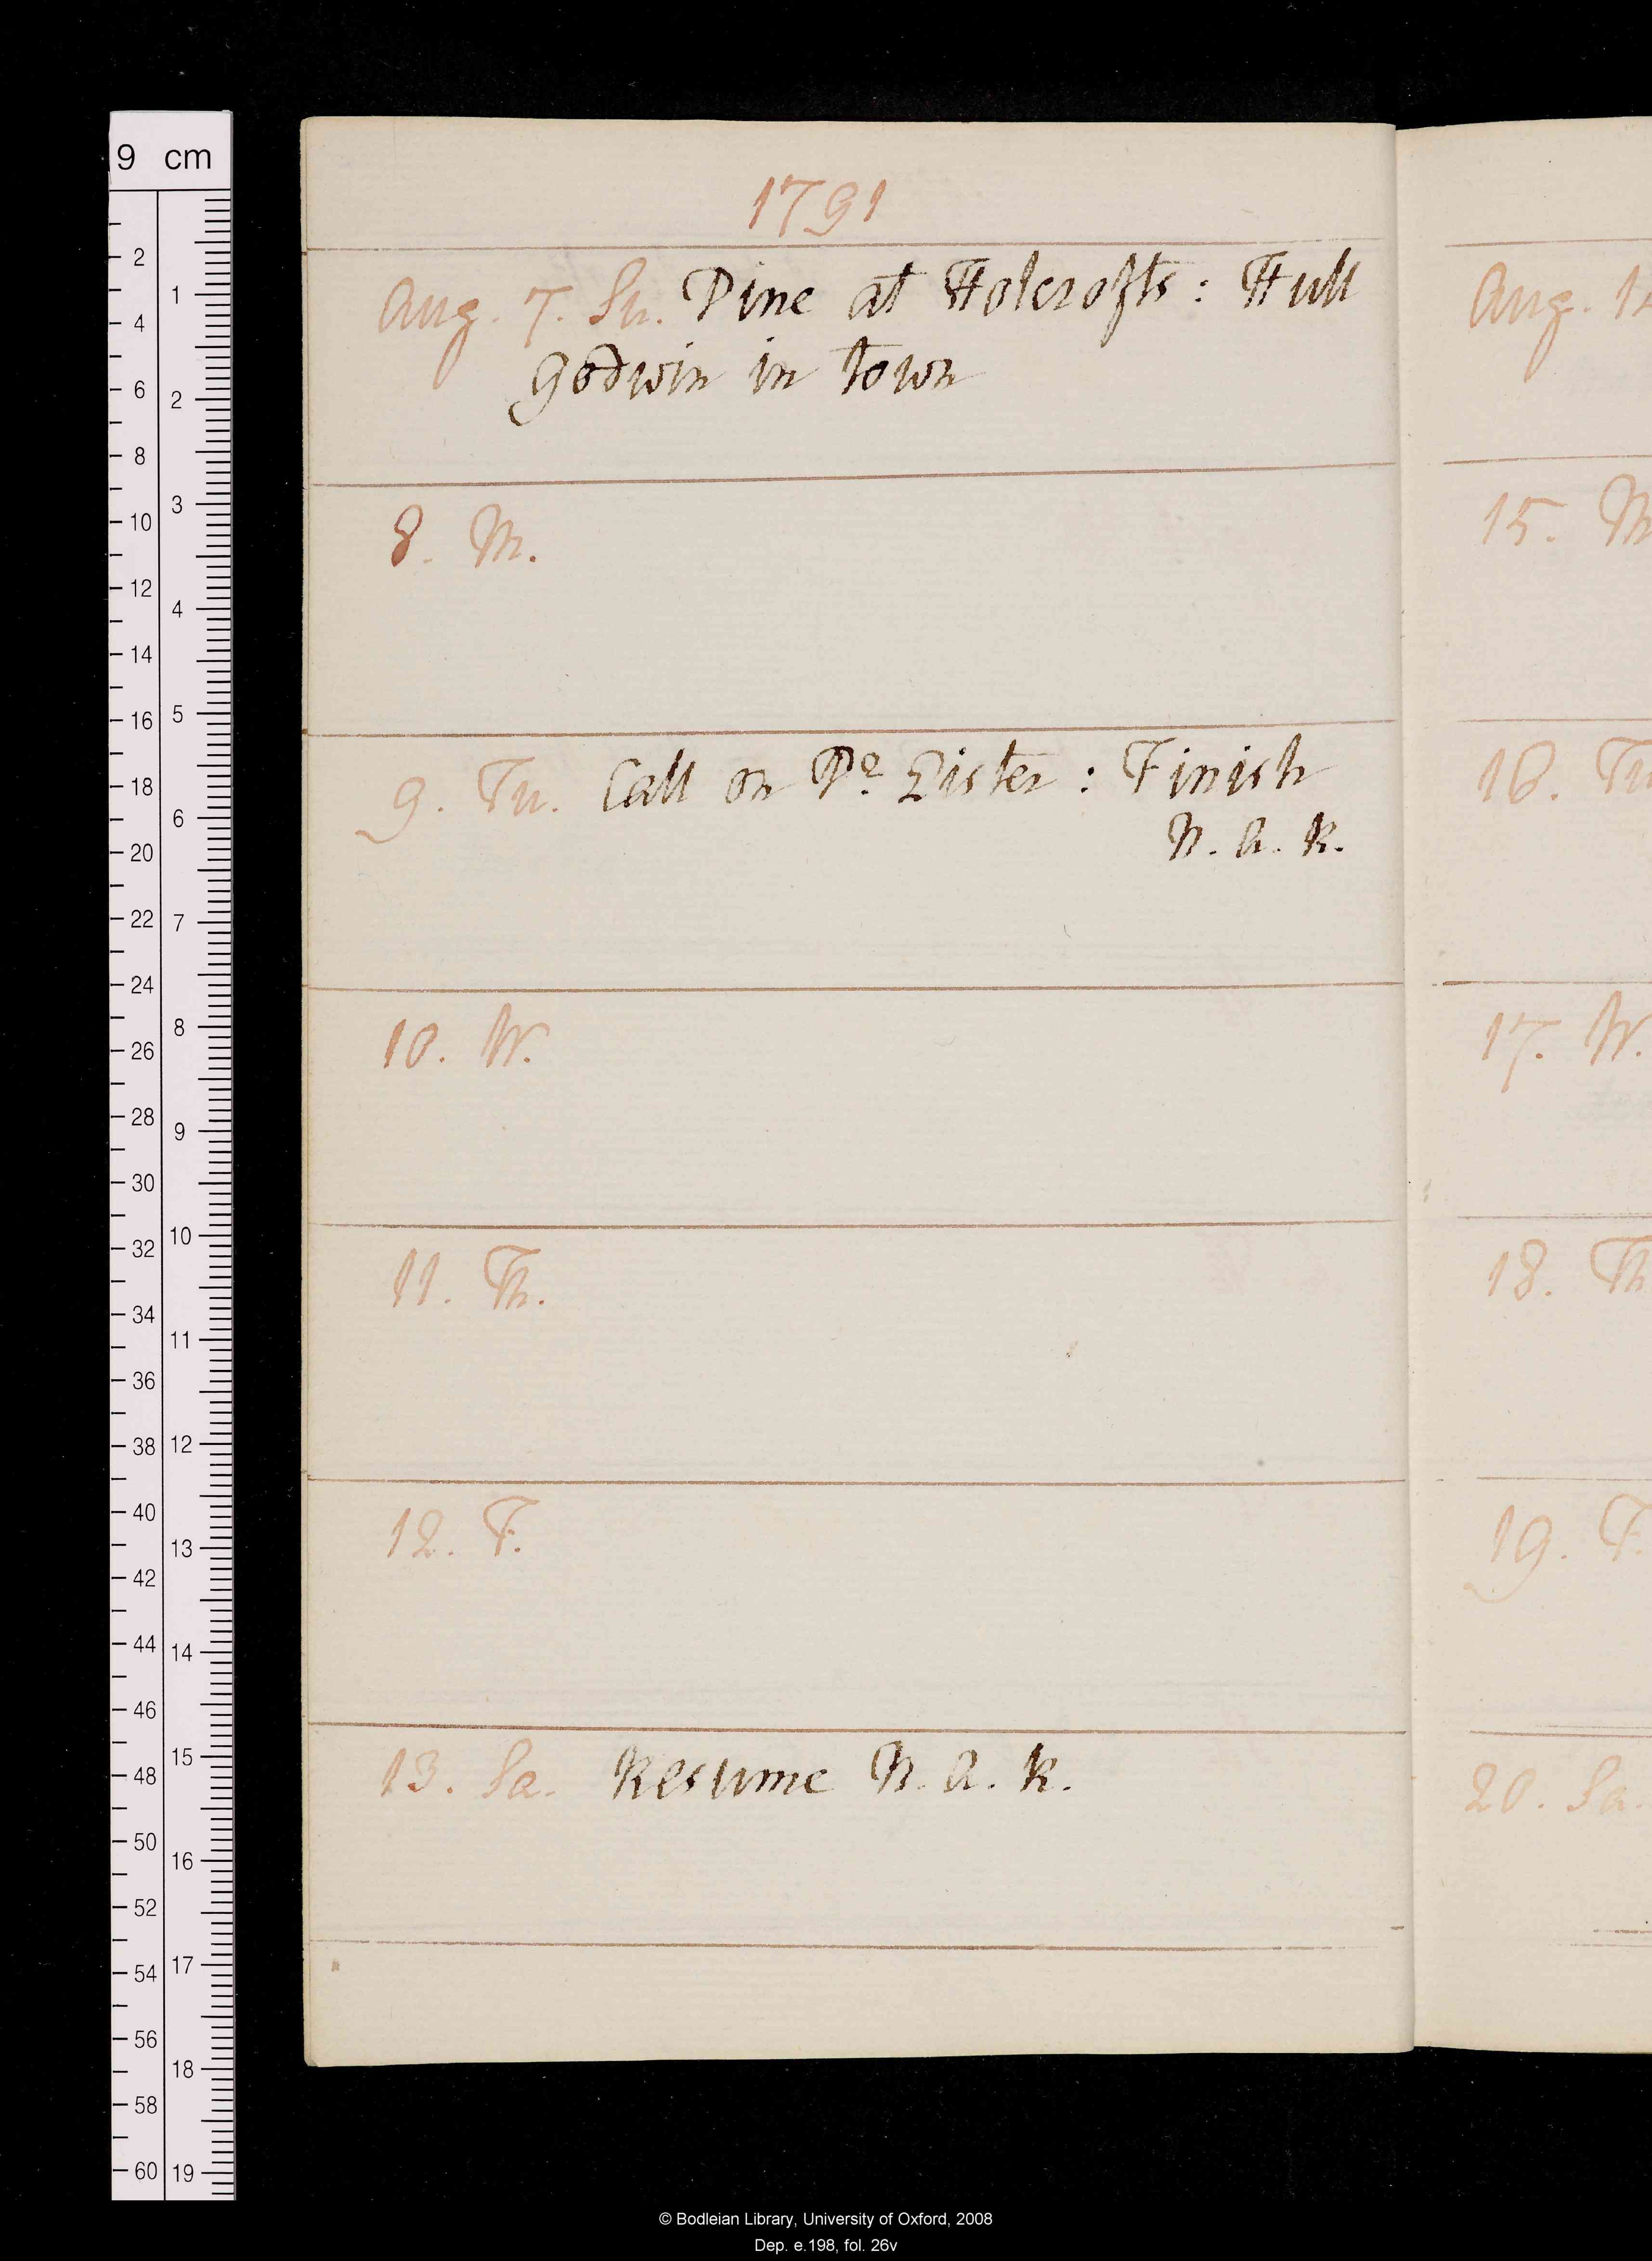 1791
Aug. 7. Su. Dine at Holcrofts: Hull
Godwin in town
8. M.
9. Tu. Call on Dr. Lister: Finish
N. A. R.
10. W.
11. Th.
12. F.
13. Sa. Resume N. A. R.
Aug. 1
15. M
16. Tu
17. W.
18. Th
19. F.
20. Sa.
9 cm
2
4
6
8
10
12
14
16
18
20
22
24
26
28
30
32
34
36
38
40
42
44
46
48
50
52
54
56
58
60
1
2
3
4
5
6
7
8
9
10
11
12
13
14
15
16
17
18
19
© Bodleian Library, University of Oxford, 2008
Dep. e.198, fol. 26v